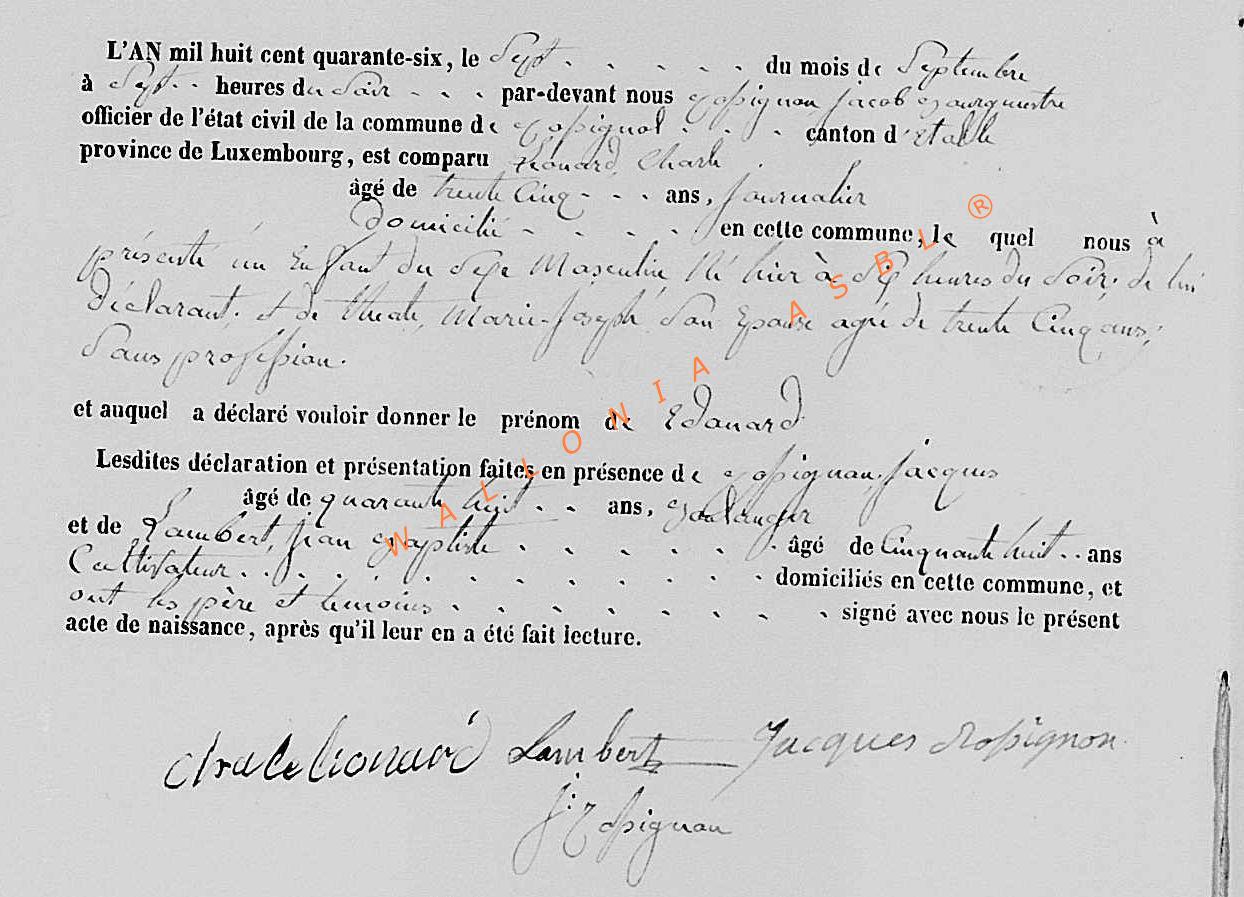 L'AN mil huit cent quarante-six, le Sept . . . . . du mois de Septembre
à Sept . . heures du Soir . . . par-devant nous Rossignon, Jacob Bourgmestre
officier de l'état civil de la commune de Rossignol . . . canton d'Etalle
province de Luxembourg, est comparu Léonard, Charle .
âgé de trente Cinq . . . ans, Journalier
Domicilié . . . . . en cette commune, le quel nous à
présenté un Enfant du Sexe Masculin, Né hier à Six heures du Soir, de lui
Déclarant, et de Marie-Joseph, Son Epouse agée de trente Cinq ans,
Sans profession.
et auquel a déclaré vouloir donner le prénom de Edouard
Lesdites déclaration et présentation faites en présence de Rossignon, Jacques
âgé de quarante huit . . ans, Boulanger
et de Lambert, Jean Baptiste . . . . . . âgé de Cinquante huit . . ans
Cultivateur . . . . . . . . . . . domiciliés en cette commune, et
ont les père et temoins . . . . . . . signé avec nous le présent
acte de naissance, après qu'il leur en a été fait lecture.
Lambert Jacques Rossignon
J: Rossignon
WALLONIA ASBL ®